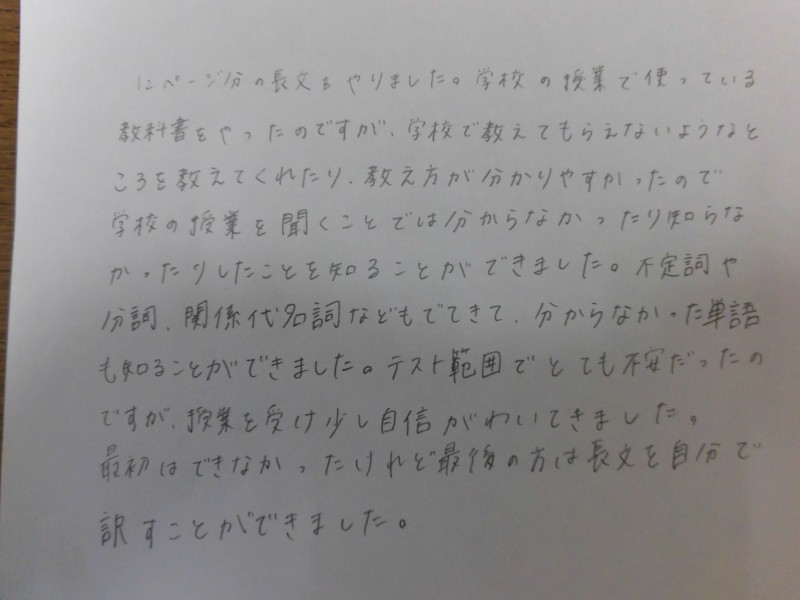 12ページ分の長文をやりました。学校の授業で使っている
教科書をやったのですが、学校で教えてもらえないようなと
ころを教えてくれたり、教え方が分かりやすかったので
学校の授業を聞くことでは分からなかったり知らな
かったりしたことを知ることができました。不定詞や
分詞、関係代名詞などもでてきて、分からなかった単語
も知ることができました。テスト範囲でとても不安だったの
ですが、授業を受け少し自信がわいてきました。
最初はできなかったけれど最後の方は長文を自分で
訳すことができました。